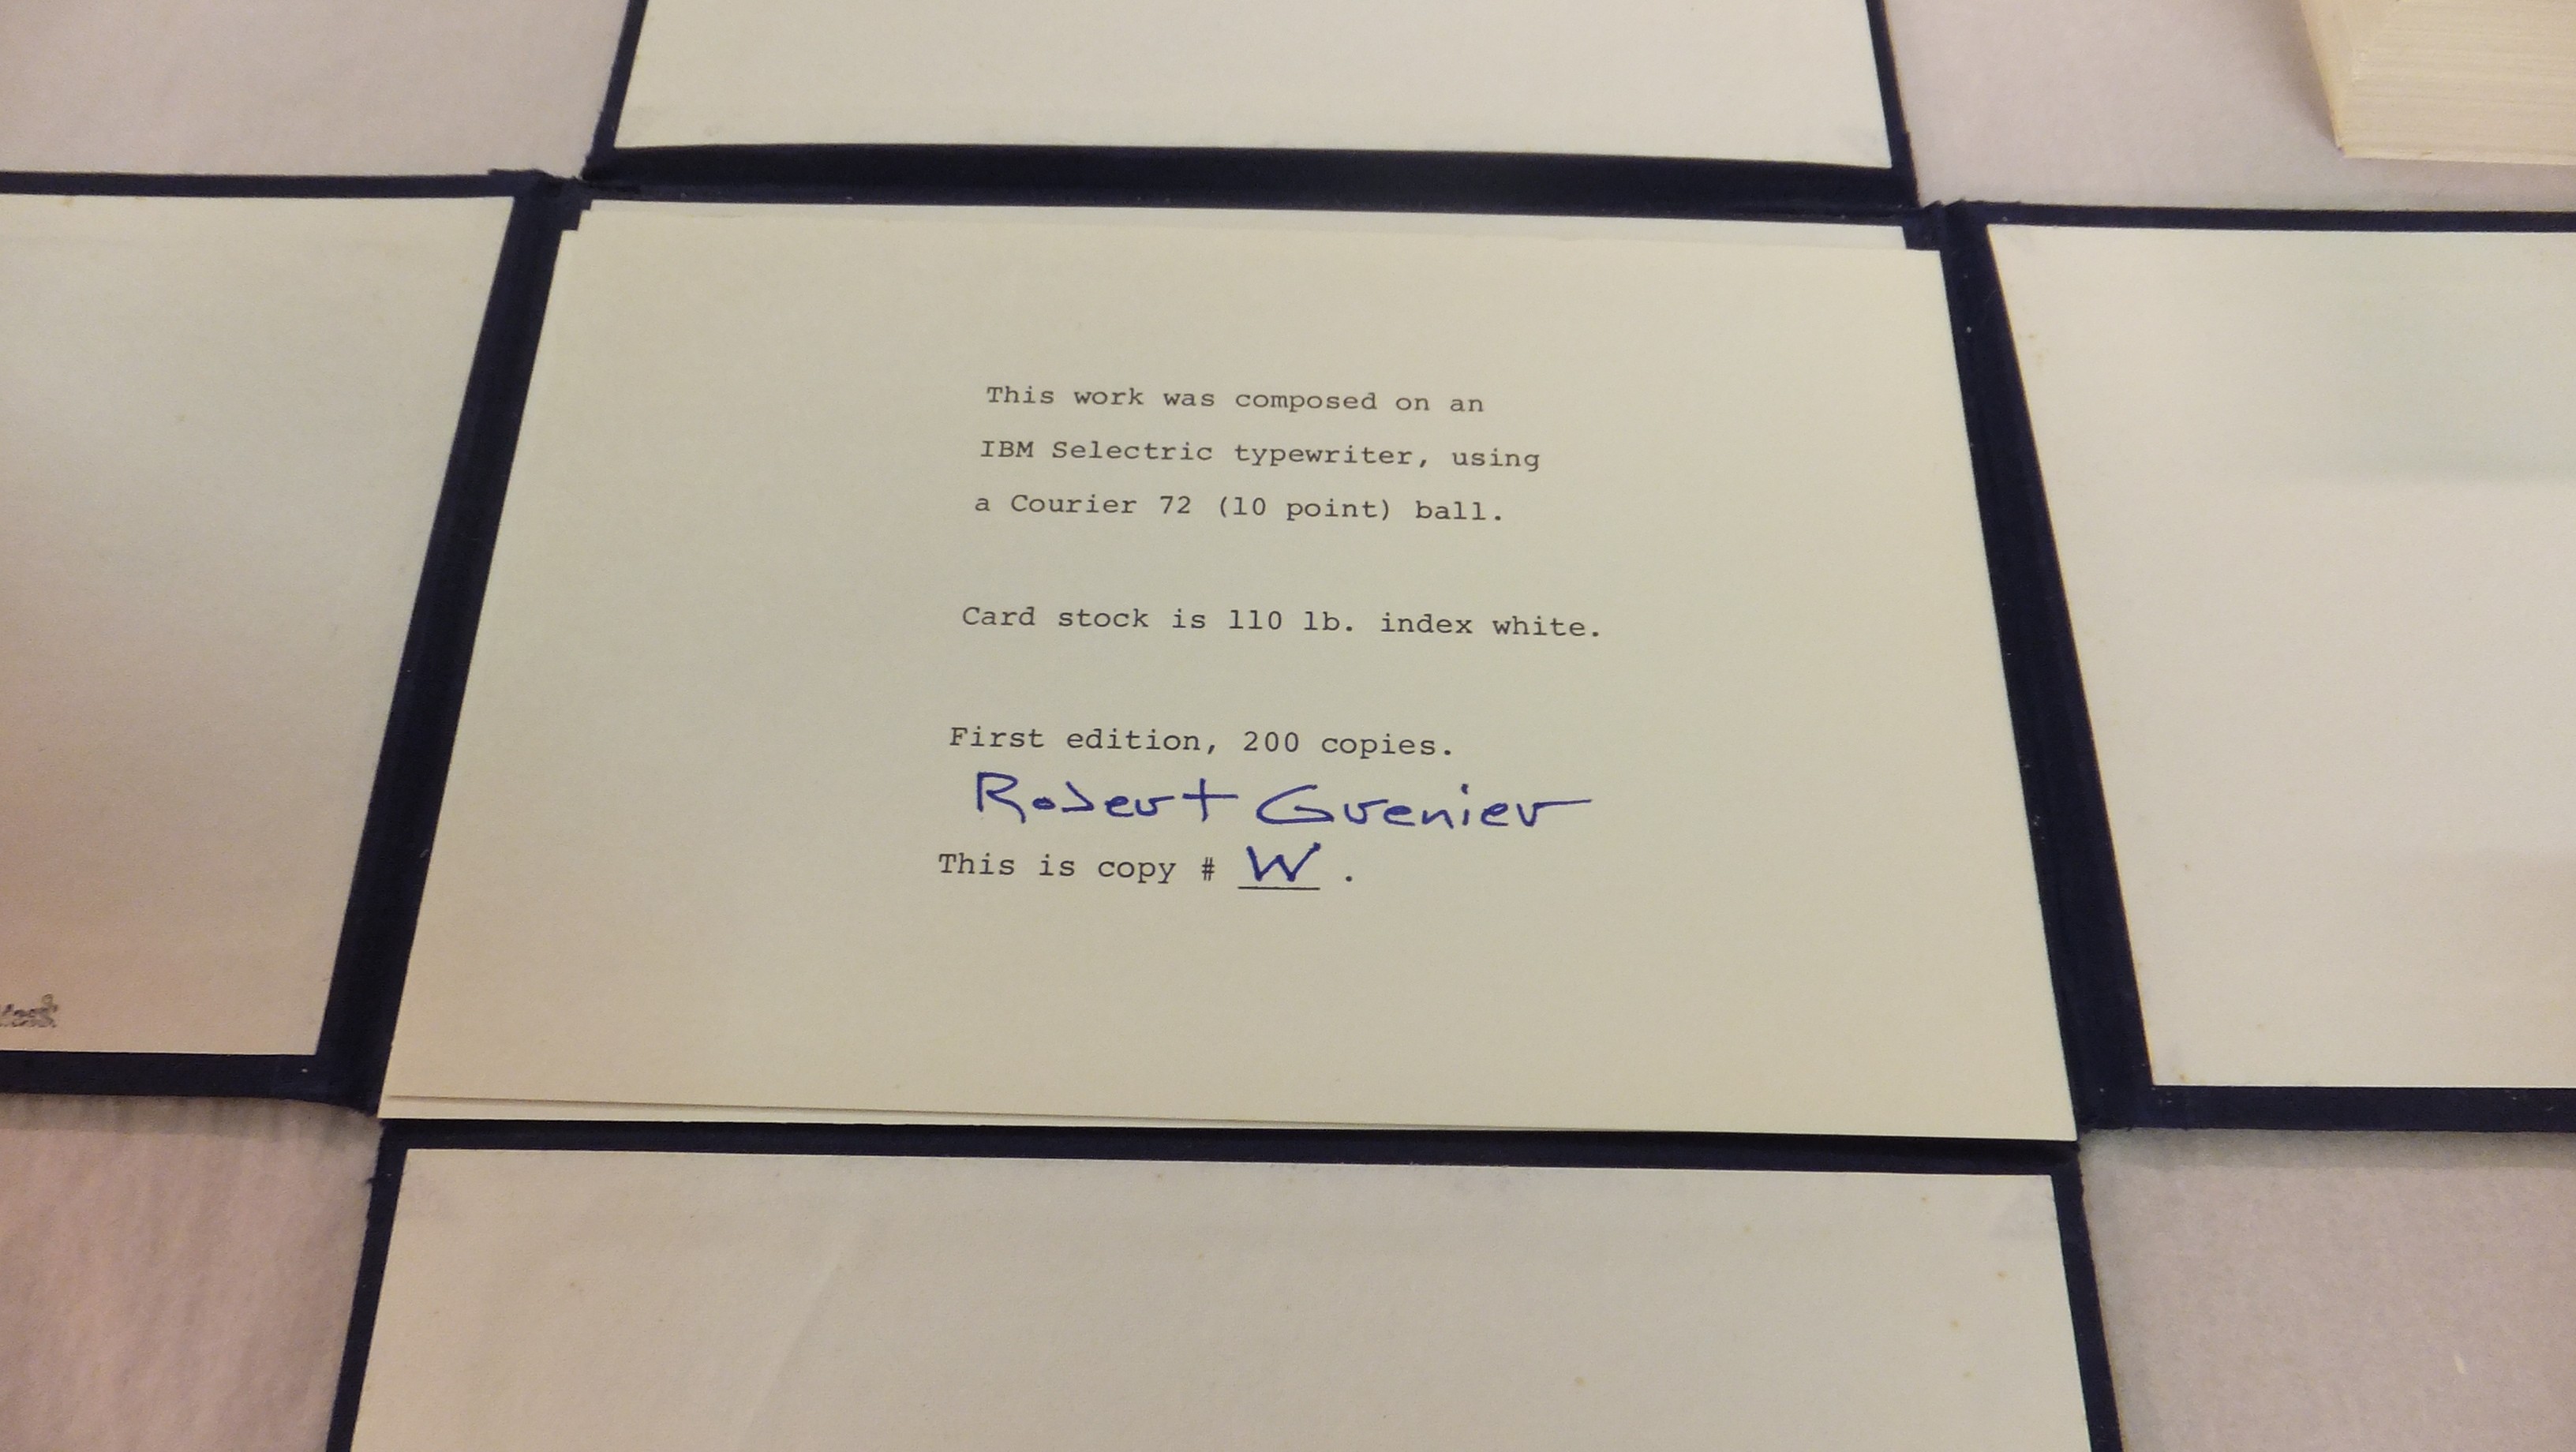 This work was composed on an
IBM Selectric typewriter, using
a Courier 72 (10 point) ball.
Card stock is 110 lb. index white.
First edition, 200 copies.
Robert Grenier
This is copy # W .